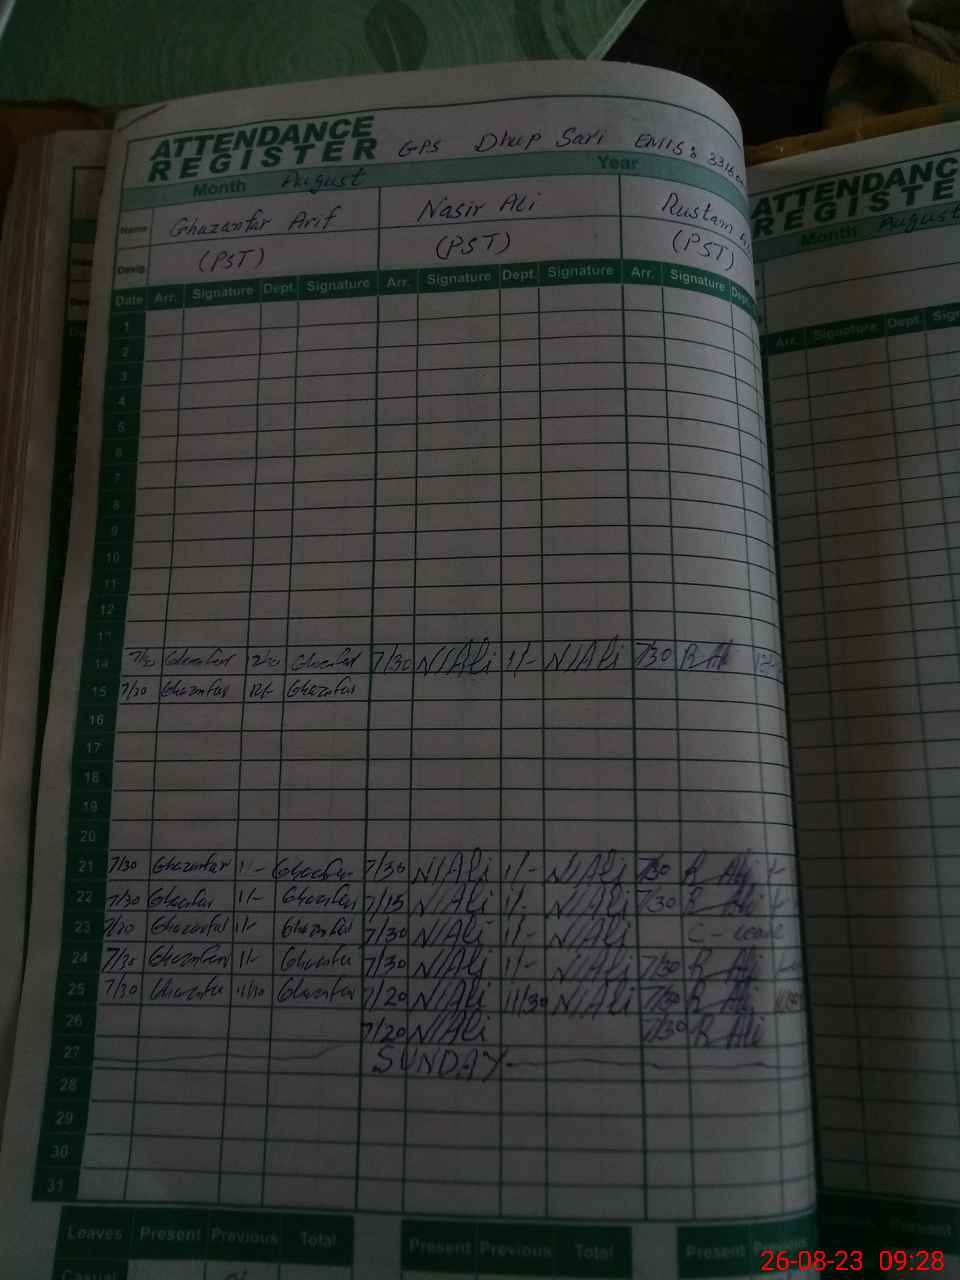 ATTENDANCE
REGISTER GPS Dhup Sari EMIS:
Month August Year
Name Ghazanfar Arif Nasir Ali Rustam
Desig. (PST) (PST) (PST)
Date Arr. Signature Dept. Signature Arr. Signature Dept. Signature Arr. Signature Dept.
1
2
3
4
5
6
7
8
9
10
11
12
14 7/30 Ghazanfar Ghazanfar 7/30 N/Ali 1/- N/Ali 7/30 R Ali
15 7/30 Ghazanfar Ghazanfar
16
17
18
19
20
21 7/30 Ghazanfar 1/- Ghazanfar 7/30 N/Ali 1/- N/Ali 7/30 R Ali
22 7/30 Ghazanfar 1/- Ghazanfar 7/15 N/Ali 1/- N/Ali 7/30 R Ali
23 Ghazanfar 1/- Ghazanfar 7/30 N/Ali 1/- N/Ali C-leave
24 7/30 Ghazanfar 1/- Ghazanfar 7/30 N/Ali 1/- N/Ali 7/30 R Ali
25 7/30 Ghazanfar 11/30 Ghazanfar 7/20 N/Ali 11/30 N/Ali 7/30 R Ali
26 7/20 N/Ali 7/30 R Ali
27 SUNDAY
28
29
30
31
Leaves Present Previous Total Present Previous Total Present Previous
Casual
ATTENDANC
REGISTE
Month August
Arr. Signature Dept.
26-08-23 09:28